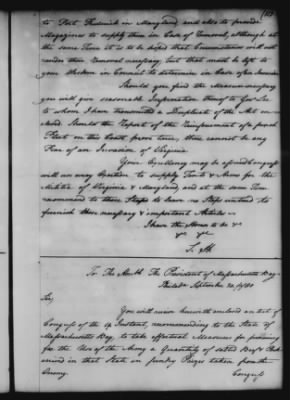 to Fort Frederick in Maryland, and also to provide
Magazines to supply them in Case of Removal, although at
the same Time it is to be hoped that Circumstances will not
render their Removal necessary, but that must be left to
your Wisdom in Council to determine in Case of an Invasion
Should you find the Measure necessary
you will give seasonable Information thereof to Govr Lee
to whom I have transmitted a Duplicate of the Act
Should the Report of the Reinforcement of a french
Fleet on this Coast prove true, there cannot be any
Fear of an Invasion of Virginia
Your Excellency may be assured Congress
will use every Exertion to supply Tents & Arms for the
Militia of Virginia & Maryland, and at the same Time
recommend to those States to leave no Steps untried to
furnish these necessary & important Articles
I have the Honor to be &c
S. H.
To The Honble The President of Massachusetts Bay
Philada September 20, 1780
Sir,
You will receive herewith enclosed an Act of
Congress of the 14 Instant, recommending to the State of
Massachusetts Bay, to take effectual Measures for procuring
for the Use of the Army a Quantity of salted Beef &
in that State on Prizes taken from the
Enemy.
Congress